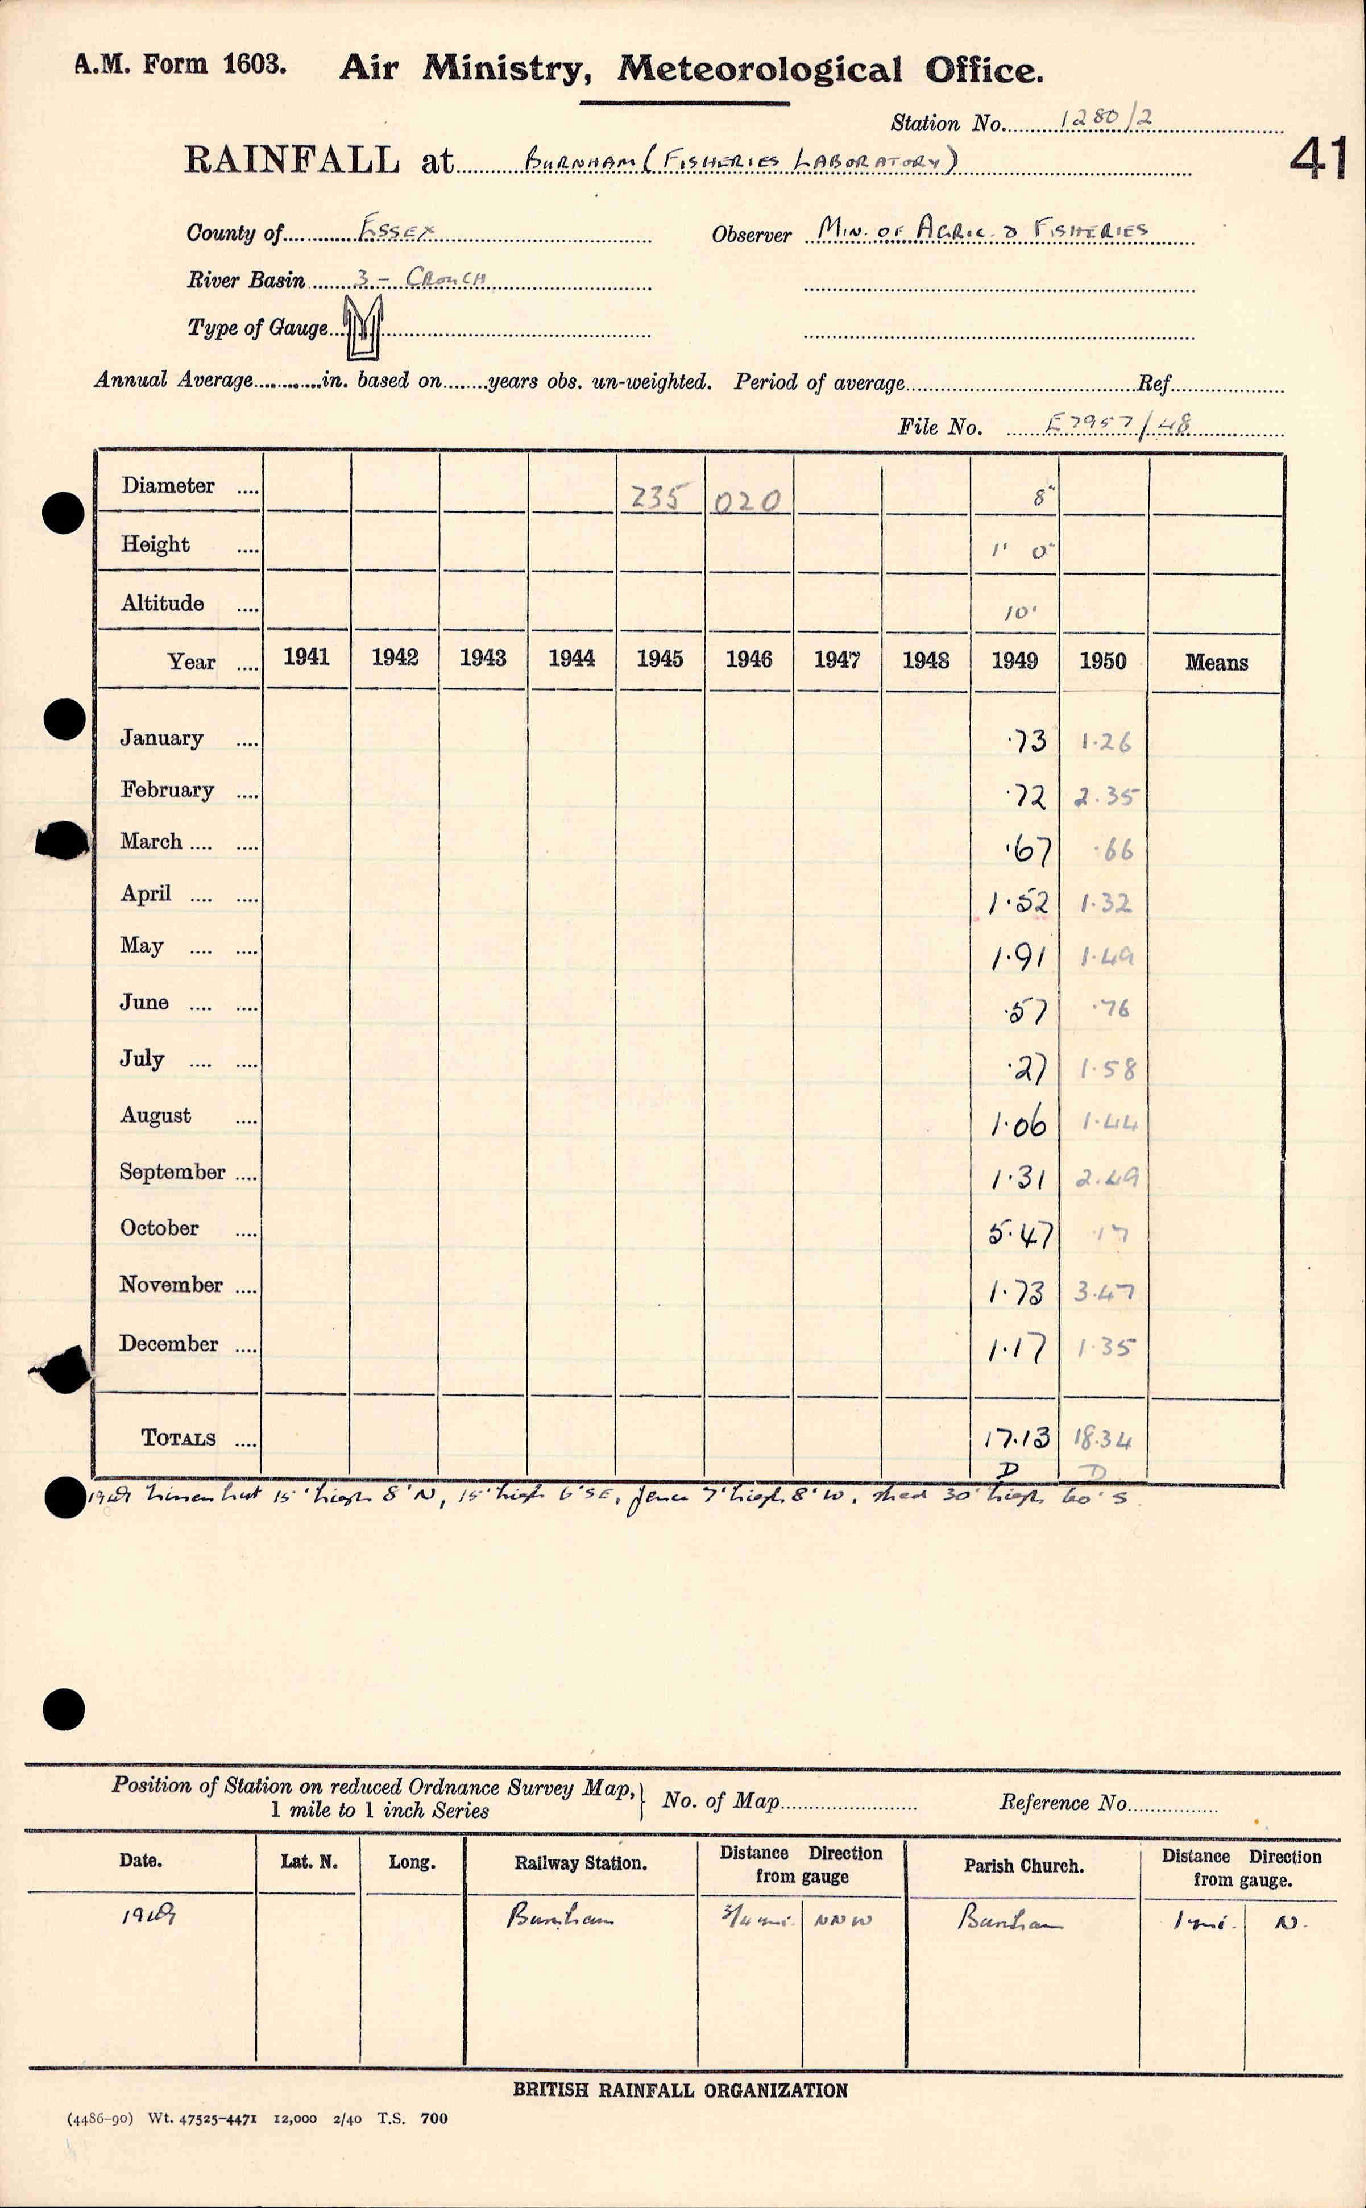 A.M. Form 1603. Air Ministry, Meteorological Office.
Station No. 1280/2
RAINFALL at BURNHAM (FISHERIES LABORATORY) 41
County of Essex Observer MIN. OF AGRIC. & FISHERIES
River Basin 3 - CROUCH
Type of Gauge M
Annual Average in. based on years obs. un-weighted. Period of average Ref
File No. E7957/48
Diameter .... 235 020 8"
Height .... 1' 0"
Altitude .... 10'
Year .... 1941 1942 1943 1944 1945 1946 1947 1948 1949 1950 Means
January .... ·73 1·26
February .... ·72 2.35
March .... .... ·67 ·66
April .... .... 1·52 1·32
May .... .... 1·91 1·49
June .... .... ·57 ·76
July .... .... ·27 1·58
August .... 1·06 1·44
September .... 1·31 2.49
October .... 5·47 ·17
November .... 1·73 3·47
December .... 1·17 1·35
TOTALS .... 17.13 18.34
D D
1949 hut 15' high 8' N, 15' high 6' SE, fence 7' high 8' W, shed 30' high 60' S
Position of Station on reduced Ordnance Survey Map, } No. of Map Reference No.
1 mile to 1 inch Series
Date. Lat. N. Long. Railway Station. Distance Direction from gauge Parish Church. Distance Direction from gauge.
1949 Burnham 3/4 mi. NNW Burnham 1 mi. N.
BRITISH RAINFALL ORGANIZATION
(4486-90) Wt. 47525-4471 12,000 2/40 T.S. 700